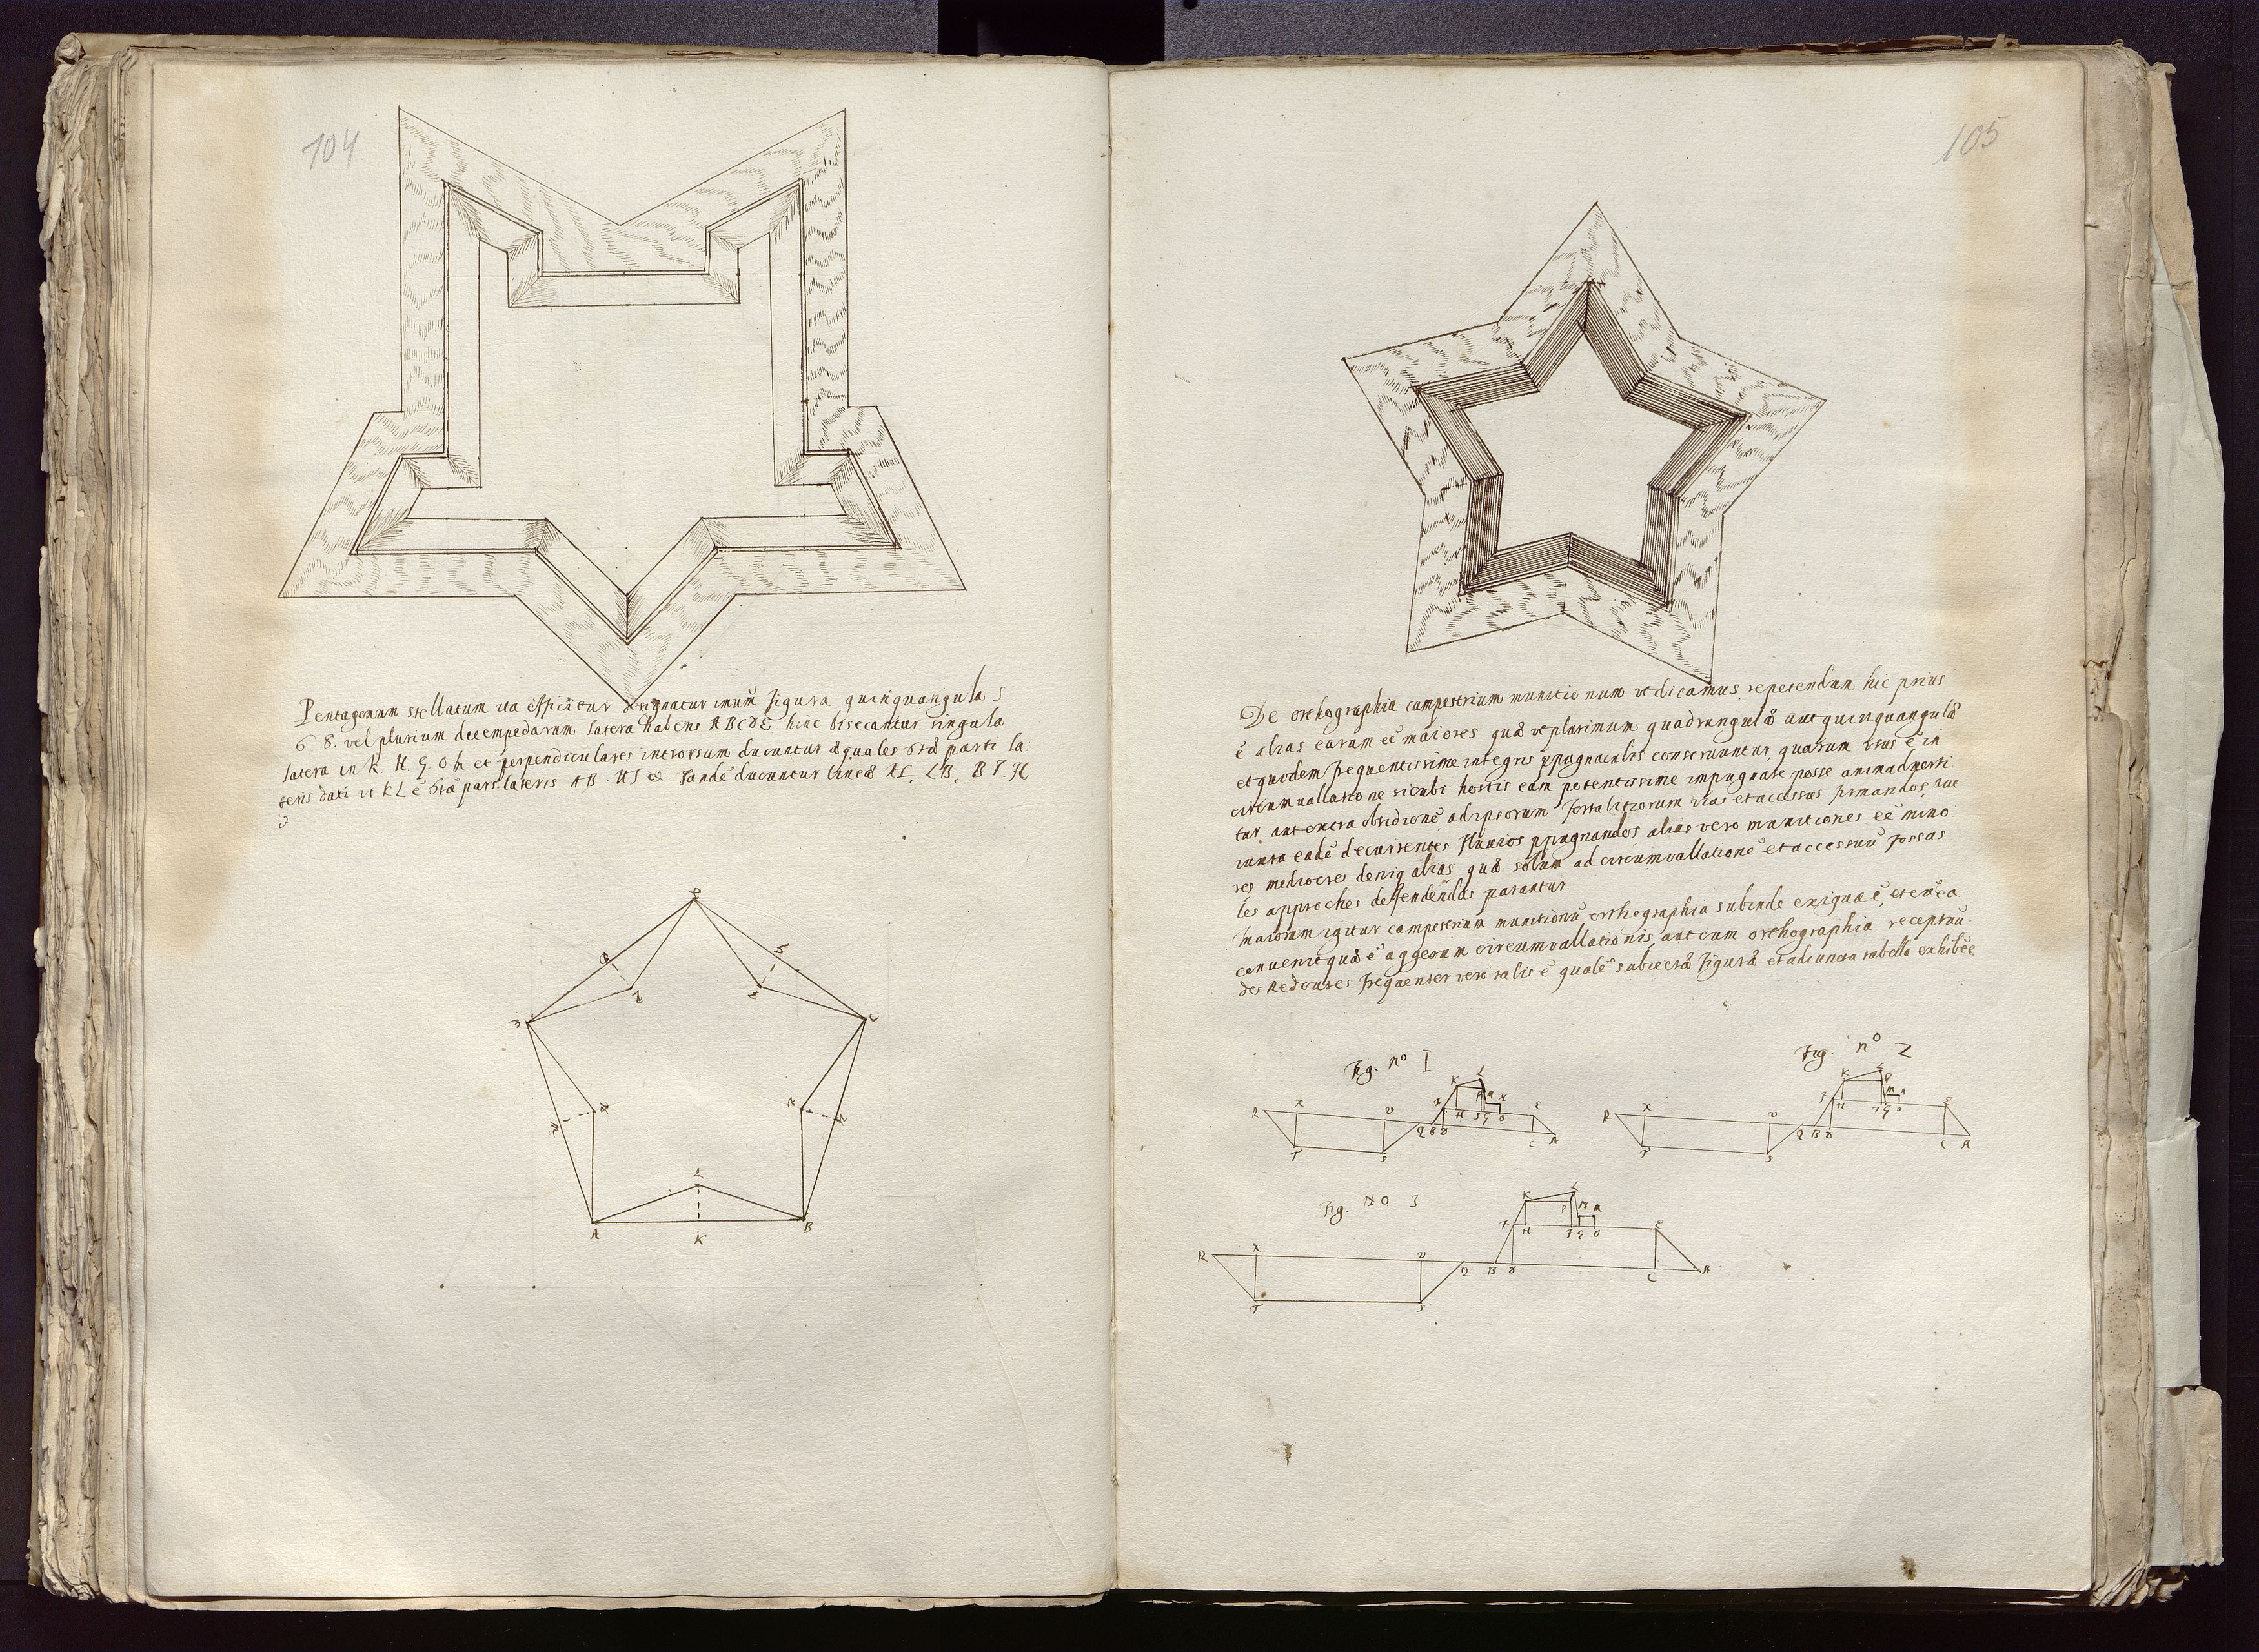 104
Pentagonum stellatum ita efficitur designatur imum figura quinquangula 5
6. 8. vel plurium decempedarum latera habens ABCDE hinc bisecantur singula
latera in K. H. G. O h et perpendiculares introrsum ducuntur æquales 6tæ parti la
teris dati ut KL è 6ta pars lateris AB. ducuntur lineæ AL, LB, B
E
O
h
D
C
m
L
A
K
B
105
De orthographia campestrium munitionum ut dicamus repetendum hic prius
è alias earum eē maiores quæ ut plurimum quadrangulæ aut quinquangulæ
et quidem frequentissime integris ppugnaculis conseruuntur, quarum usus ē in
circumuallatione sicubi hostis eam potentissime impugnare posse animaduerti
tur aut extra obsidionē ad ipsorum fortalitiorum vias et accessus firmandos, aut
iuxta eadē decurrentes fluuios ppugnandos alias vero munitiones eē mino
res mediocres deniq alias quæ solum ad circumuallationē et accessuū fossas
les approches deffendendas parantur.
Maiorum igitur campestrium munitionū orthographia subinde exigua ē, et cū ea
conuenit quæ ē aggerum circumuallationis, aut cum orthographia receptuū
des Redoutes frequenter vero talis ē qualē subiectæ figuræ et adiuncta tabella exhibēt
Fig. nº 1
K L
R X V F H E
Q B D C A
T S
Fig. nº 2
K L
R X V F H E
Q B D C A
T S
Fig. NO 3
K L
F H P
R X V Q B D C A
T S